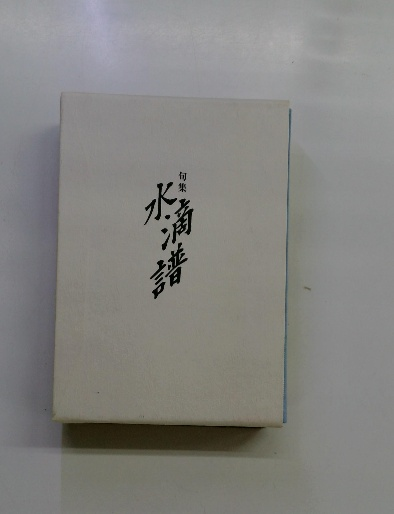 句集
水滴譜